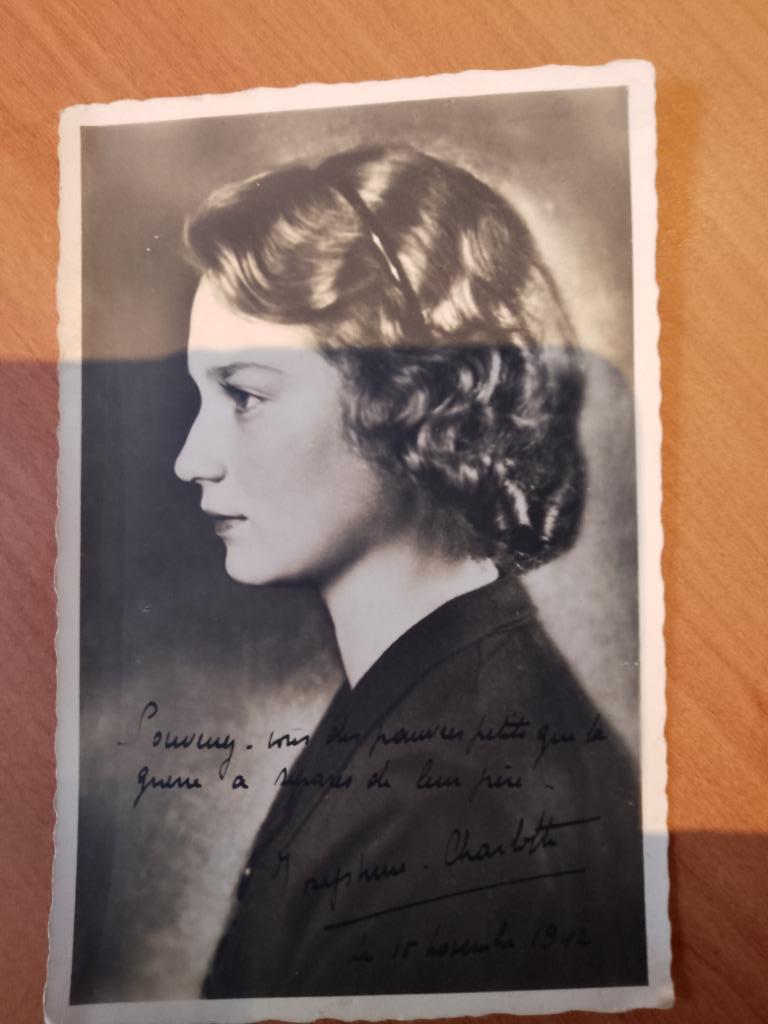 Souvenez-vous des pauvres petits que la
guerre a séparés de leur père.
Joséphine-Charlotte
le 15 novembre 1942